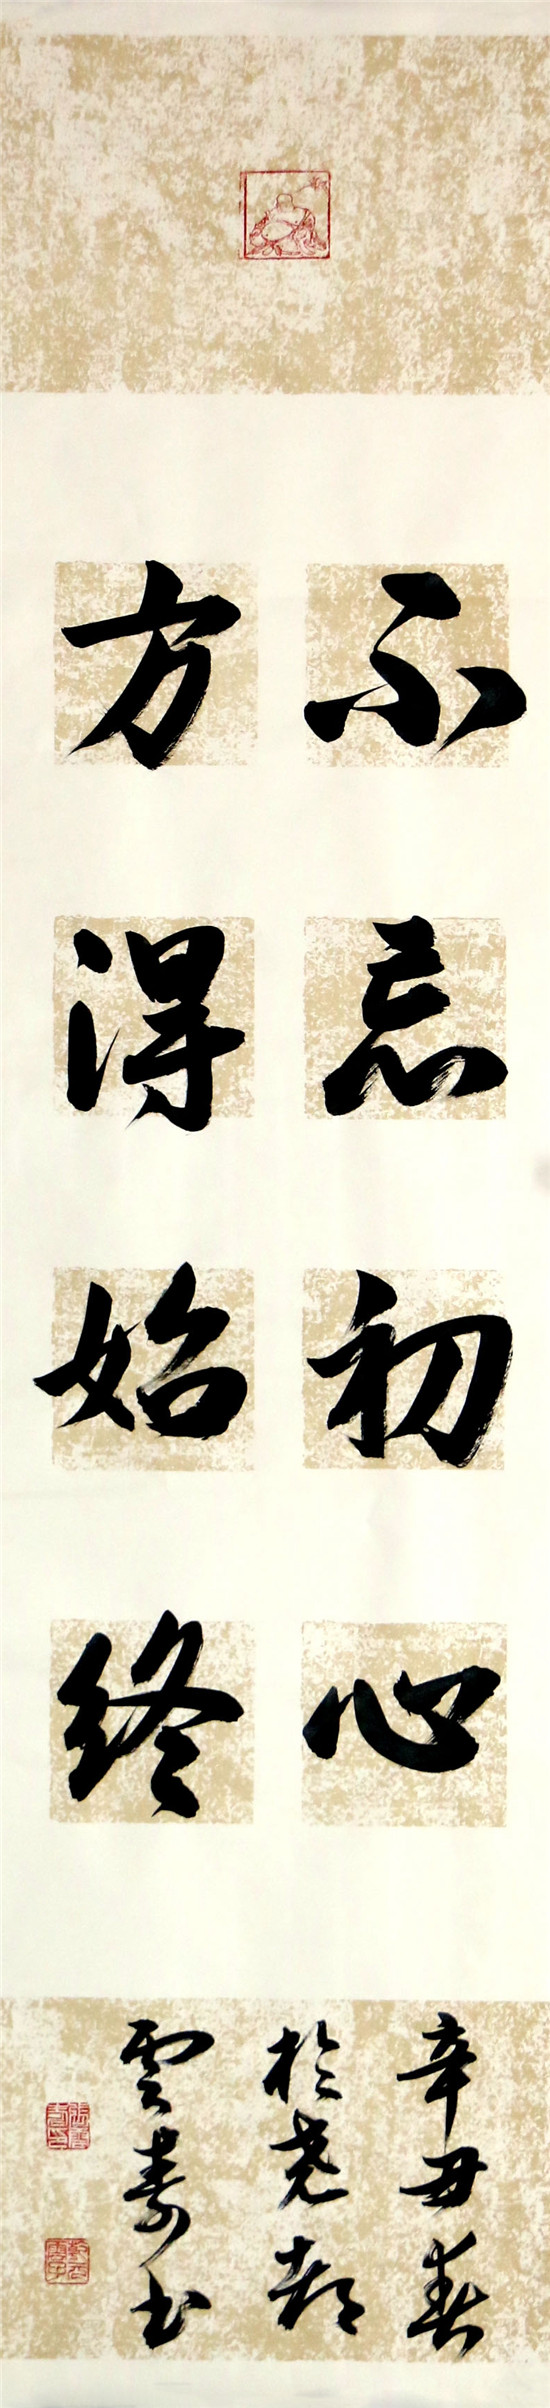 不忘初心
方得始终
辛丑春
於尧都
云寿书